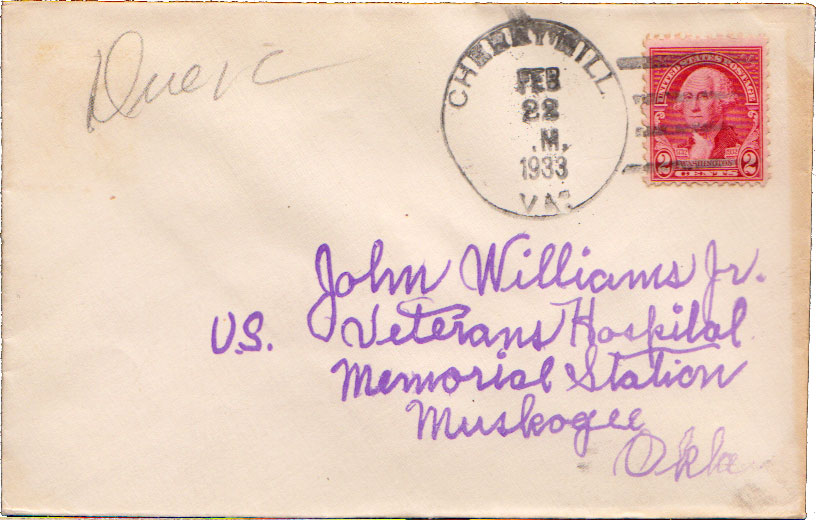 CHERRY HILL
FEB
22
.M.
1933
VA.
UNITED STATES POSTAGE
WASHINGTON
2 CENTS 2
John Williams Jr.
U.S. Veterans Hospital
Memorial Station
Muskogee
Okla